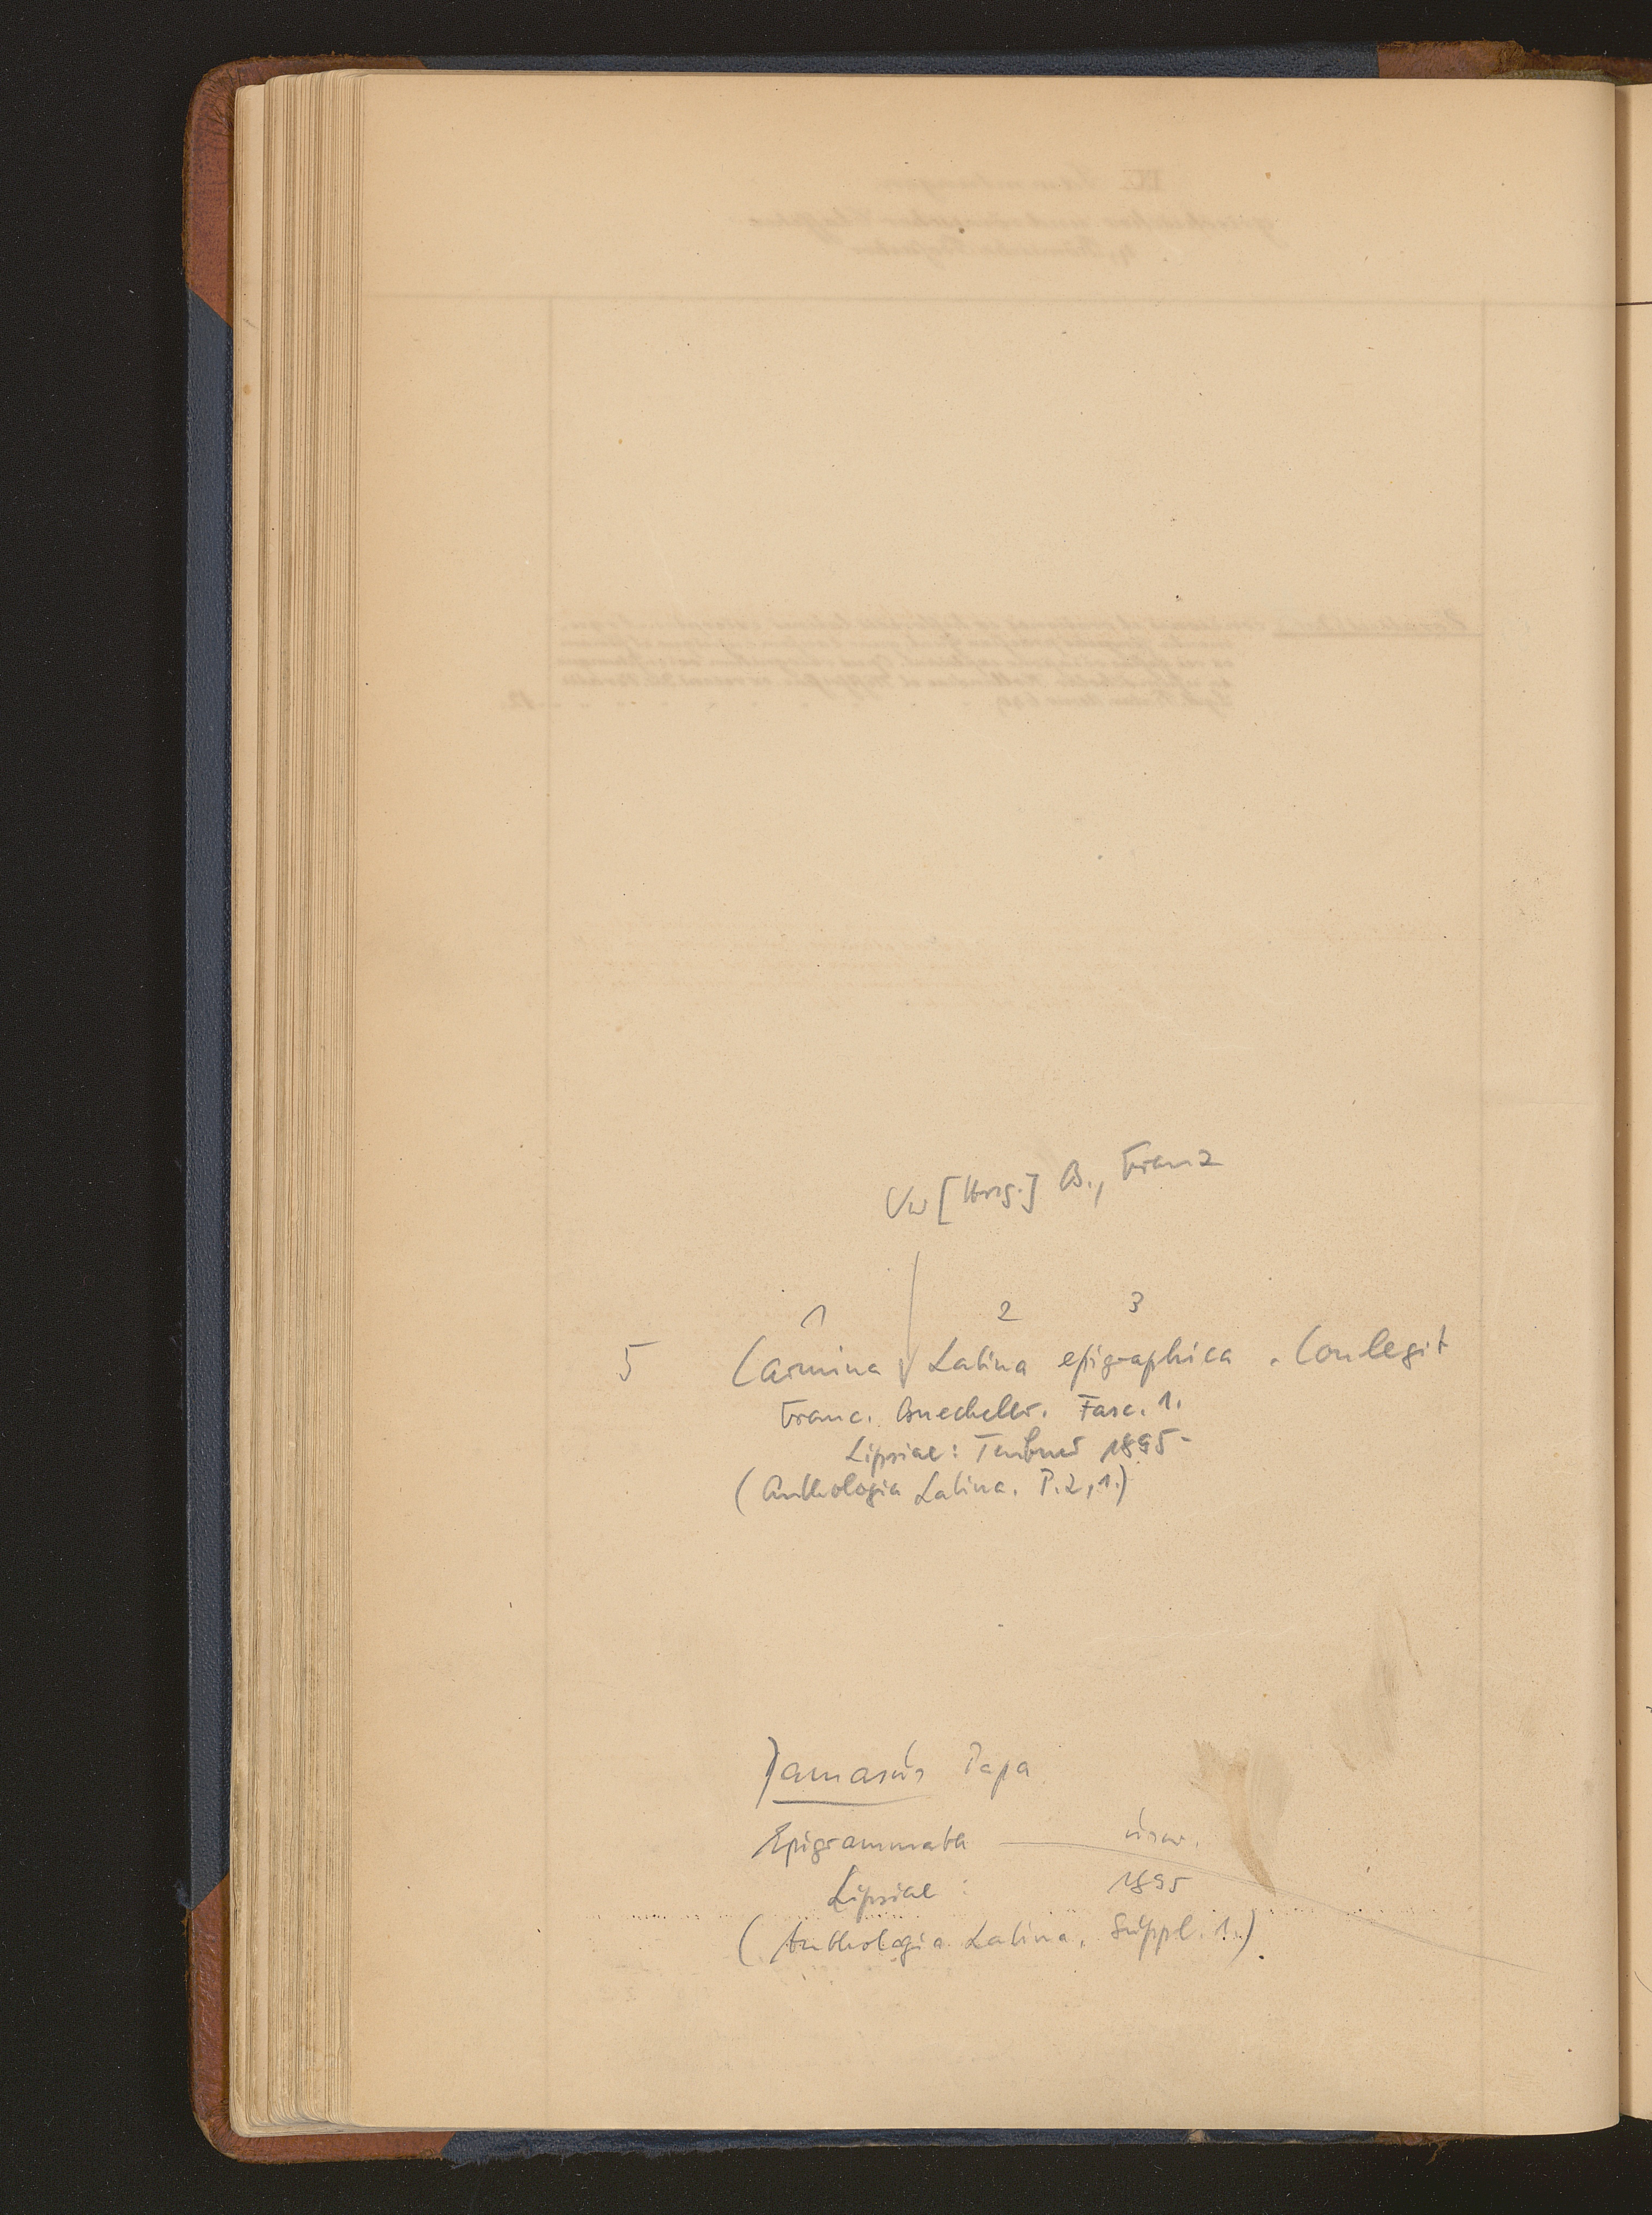 Vw [Hrsg.] B., Franz
1 2 3
5 Carmina Latina epigraphica. Conlegit
Franc. Buecheler. Fasc. 1.
Lipsiae: Teubner 1895-
(Anthologia Latina. P. 2,1.)
Damasus Papa
Epigrammata — usw.
Lipsiae : 1895
(Anthologia Latina. Suppl. 1.)